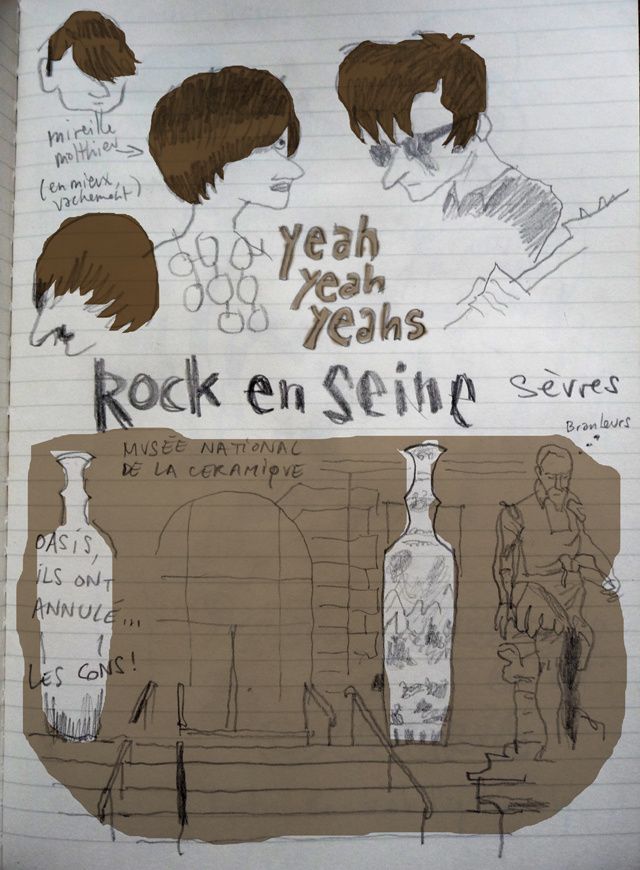 mireille
matthieu
(en mieux,
vachement)
yeah
yeah
yeahs
Rock en Seine
Sèvres
Branleurs
MUSÉE NATIONAL
DE LA CERAMIQUE
OASIS,
ILS ONT
ANNULÉ...
LES CONS!